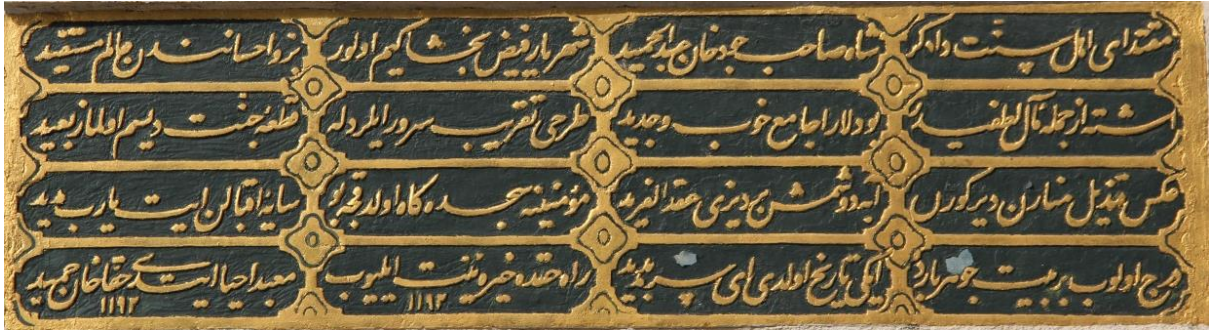 مقتدای اهل سنت دادگر شاه صاحب جود خان عبدالحمید شهریار فیض بخشا کیم اولور احسانندن عالم مستفید
اشته از جمله مآل لطفیدر بو دلارا جامع خوب و جدید طرحی تقریب سرور ایلر دله قطعهٔ جنت دیسم اولماز بعید
عکس قندیل منارن دیر کورن آیه دوشمش بر دیزی عقد الفرید مؤمنینه سجده کاه اولدقجه بو سایهٔ اقبالن ایت یارب مدید
درج اولوب بر بیت جوهر بارده ایکی تاریخ اولدی ای بدید راه حقده خیره نیت ایلیوب ١١٩٢ معبد احیا ایتدی حقا خان حمید ١١٩٢